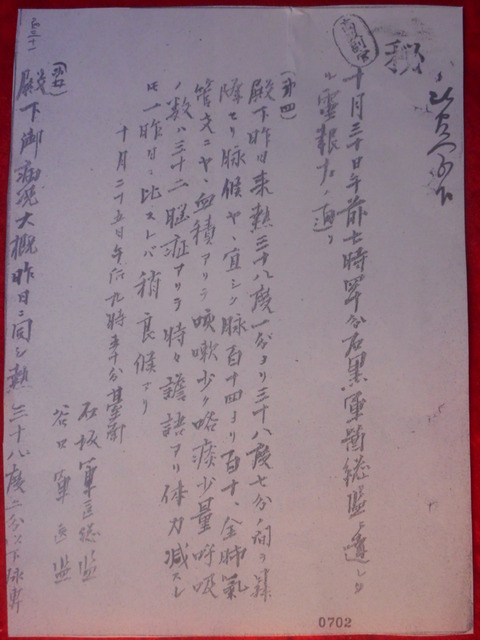 秘
十月三十日午前七時四十分石黒軍醫総監ヨリ
ル電報左ノ通リ
(第四)
殿下昨日来熱三十八度一分ヨリ三十八度七分ノ間ヲ昇
降セリ脉候ヤヽ宜シク脉百十四ヨリ百十、全肺氣
管支ニヤヽ血積アリテ咳嗽少ク咯痰少量呼吸
ノ数ハ三十二脳症アリテ時々譫語アリ体力減スレ
ﾄﾓ一昨日ニ比スレバ稍良候アリ
十月二十五日午后九時五十分臺南
石坂軍医総監
谷口軍医監
殿下御病況大概昨日ニ同シ熱三十八度二分以下脉
0702